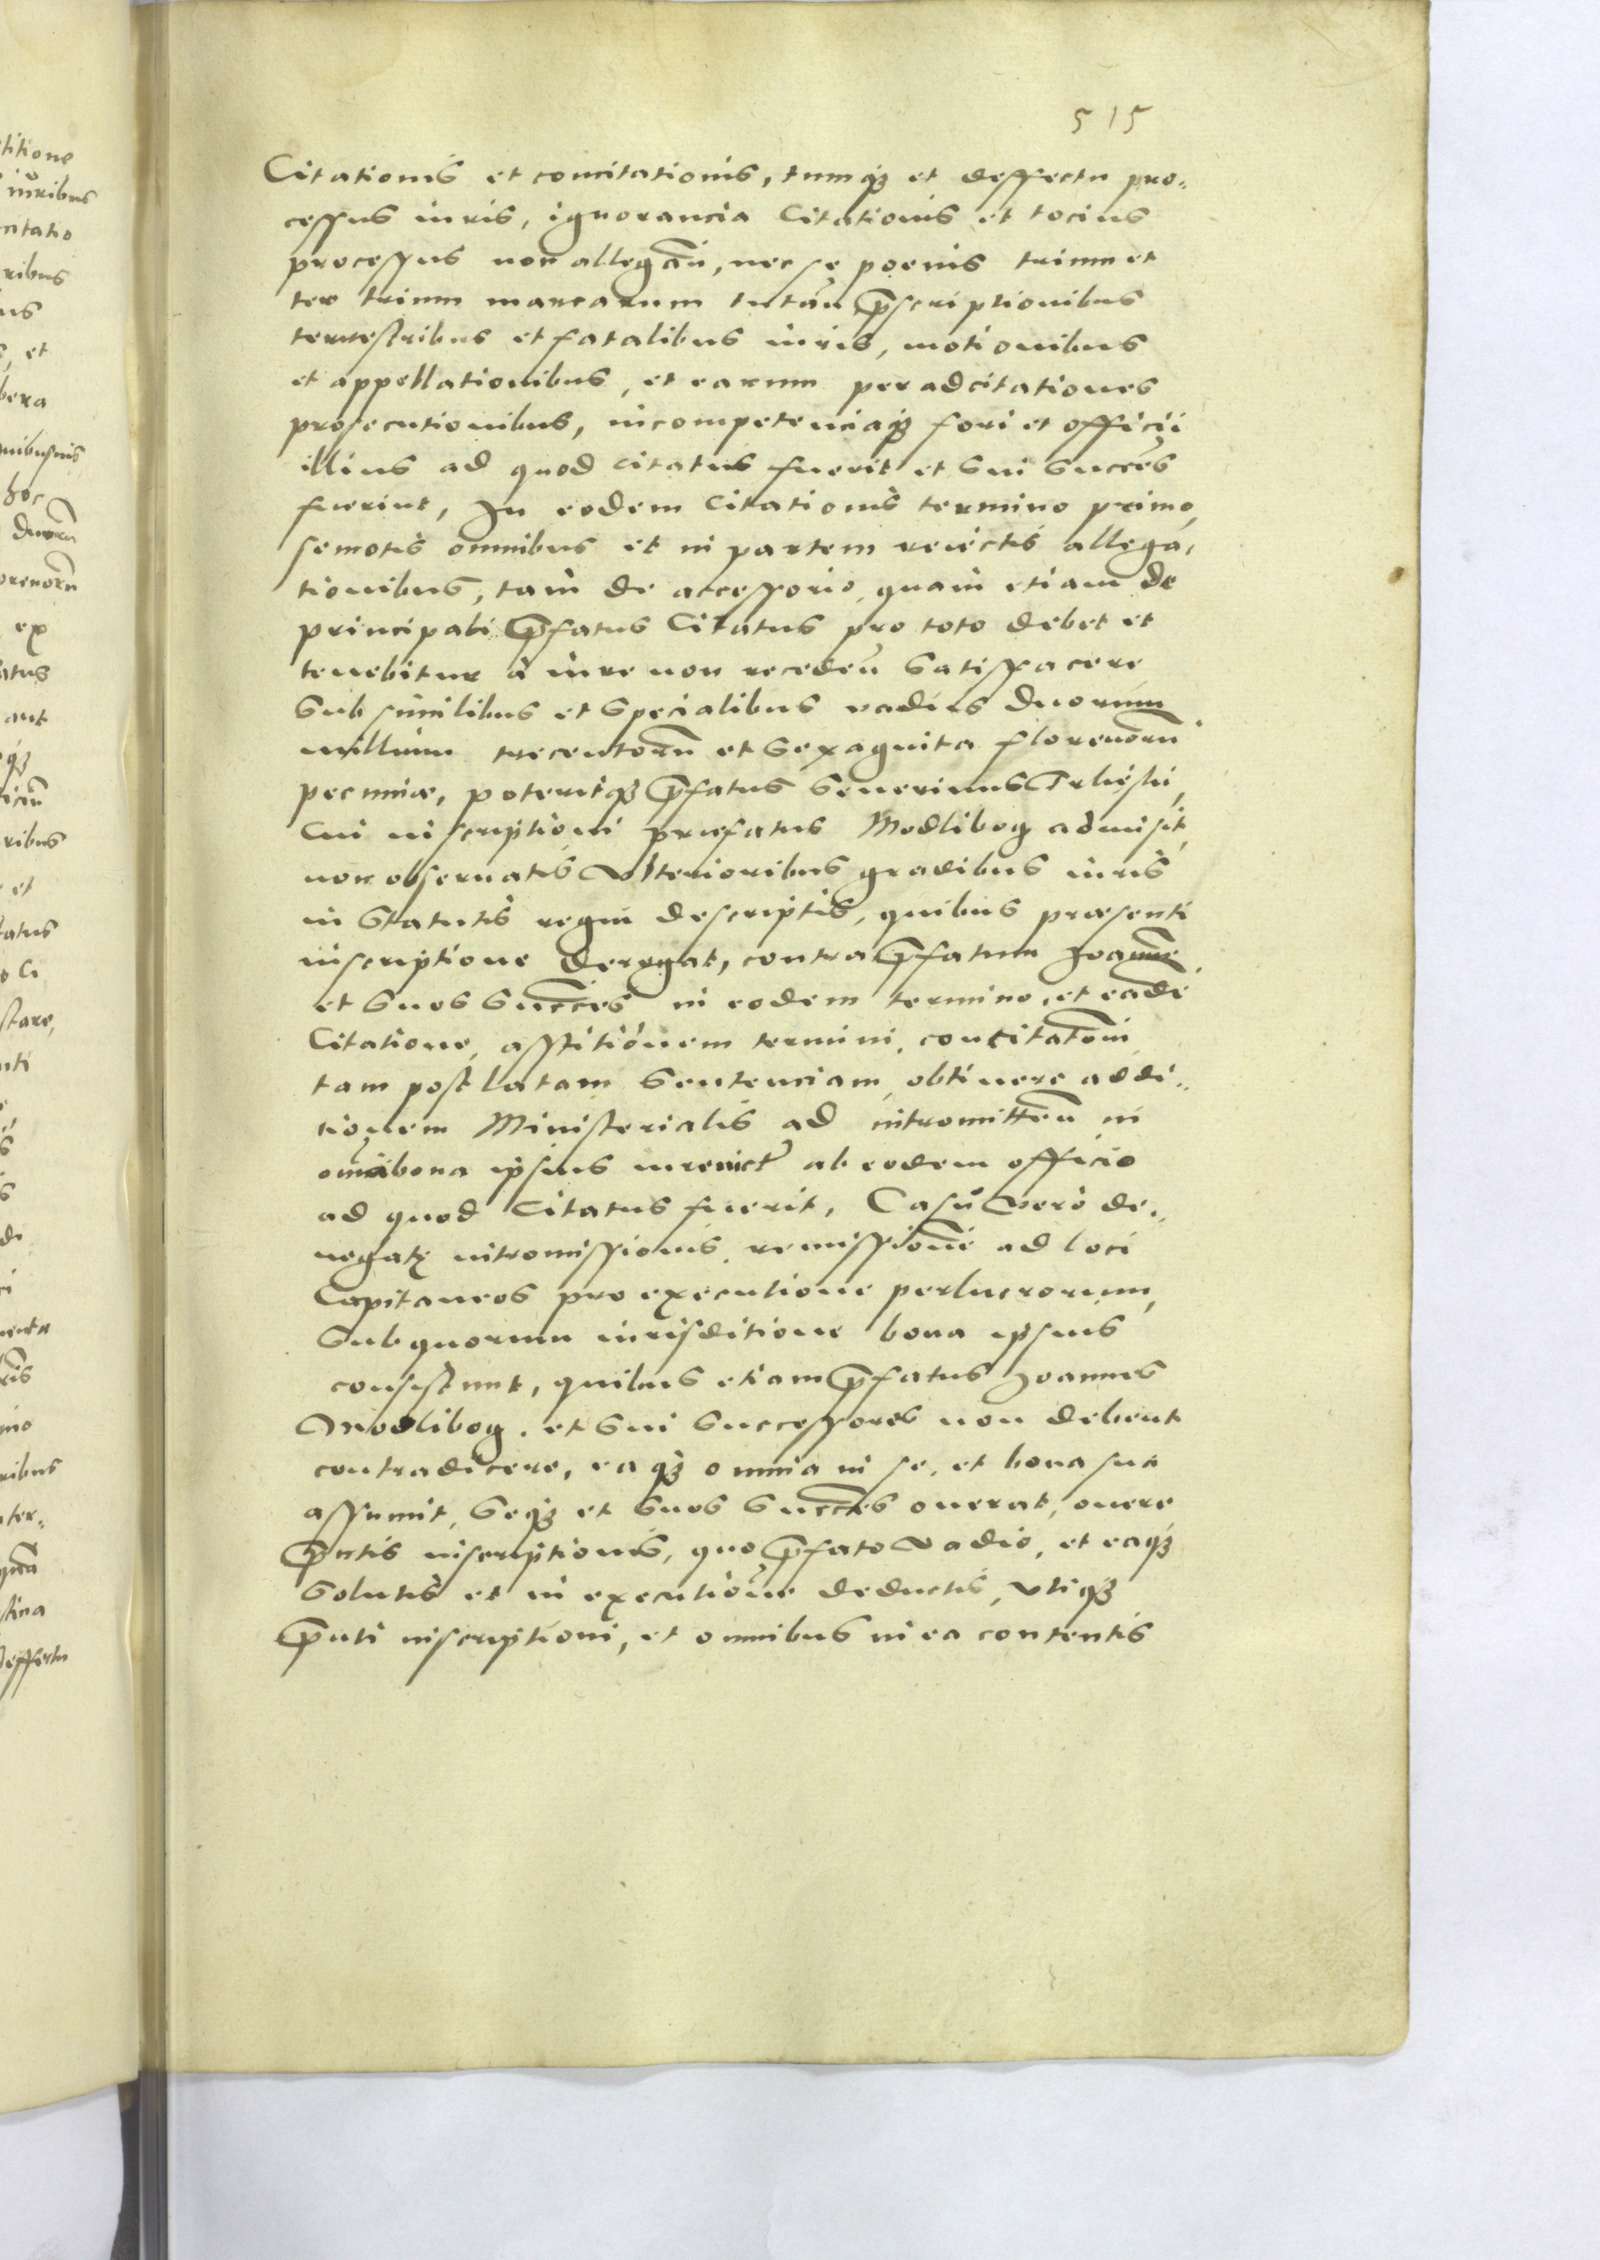 515
Citationis et concitationis, tumq꜄ et deffectu pro-
cessus iuris, ignorancia Citationis et tocius
processus non allegan̄, nec se poenis trium et
ter trium marcarum tutan̄ p̄scriptionibus
terrestribus et fatalibus iuris, motionibus
et appellationibus, et earum per adcitationes
prosecutionibus, incompetenciaq꜄ fori et officii
illius ad quod citatus fuerit et sui succes̄
fuerint, In eodem Citationis termino primo,
semotis omnibus et in partem reiectis allega-
tionibus, tam de accessorio, quam etiam de
principali p̄fatus Citatus pro toto debet et
tenebitur à iure non receden̄ satisfacere
sub similibus et specialibus vadiis duorum
millium trecentorū et sexaginta florenorū
pecuniæ, poteritq꜄ p̄fatus Seuerinus
Cui inscriptioni præfatus Modlibog admisit,
non obseruatis vlterioribus gradibus iuris
in Statutis regni descriptis, quibus præsenti
inscriptione derogat, contra p̄fatum Joannē
et suos succes̄ in eodem termino, et eadē
Citatione, astitionem termini, concitatōni
tam post latam sentenciam, obtinere addi-
tionem Ministerialis ad intromitten̄ in
om̄ia bona ipsius ab eodem officio
ad quod Citatus fuerit, Casu vero de-
negatę intromissionis, remissionē ad loci
Capitaneos pro executione perlucrorum,
sub quorum iurisditione bona ipsius
consistunt, quibus etiam p̄fatus Joannes
Modlibog, et sui successores non debent
contradicere, eaq꜄ omnia in se, et bona sua
assumit, seq꜄ et suos succes̄ onerat, onere
p̄ntis inscriptionis, quo p̄fato vadio, et eaq꜄
solutis et in executione deductis, vtiq꜄
p̄nti inscriptioni, et omnibus in ea contentis